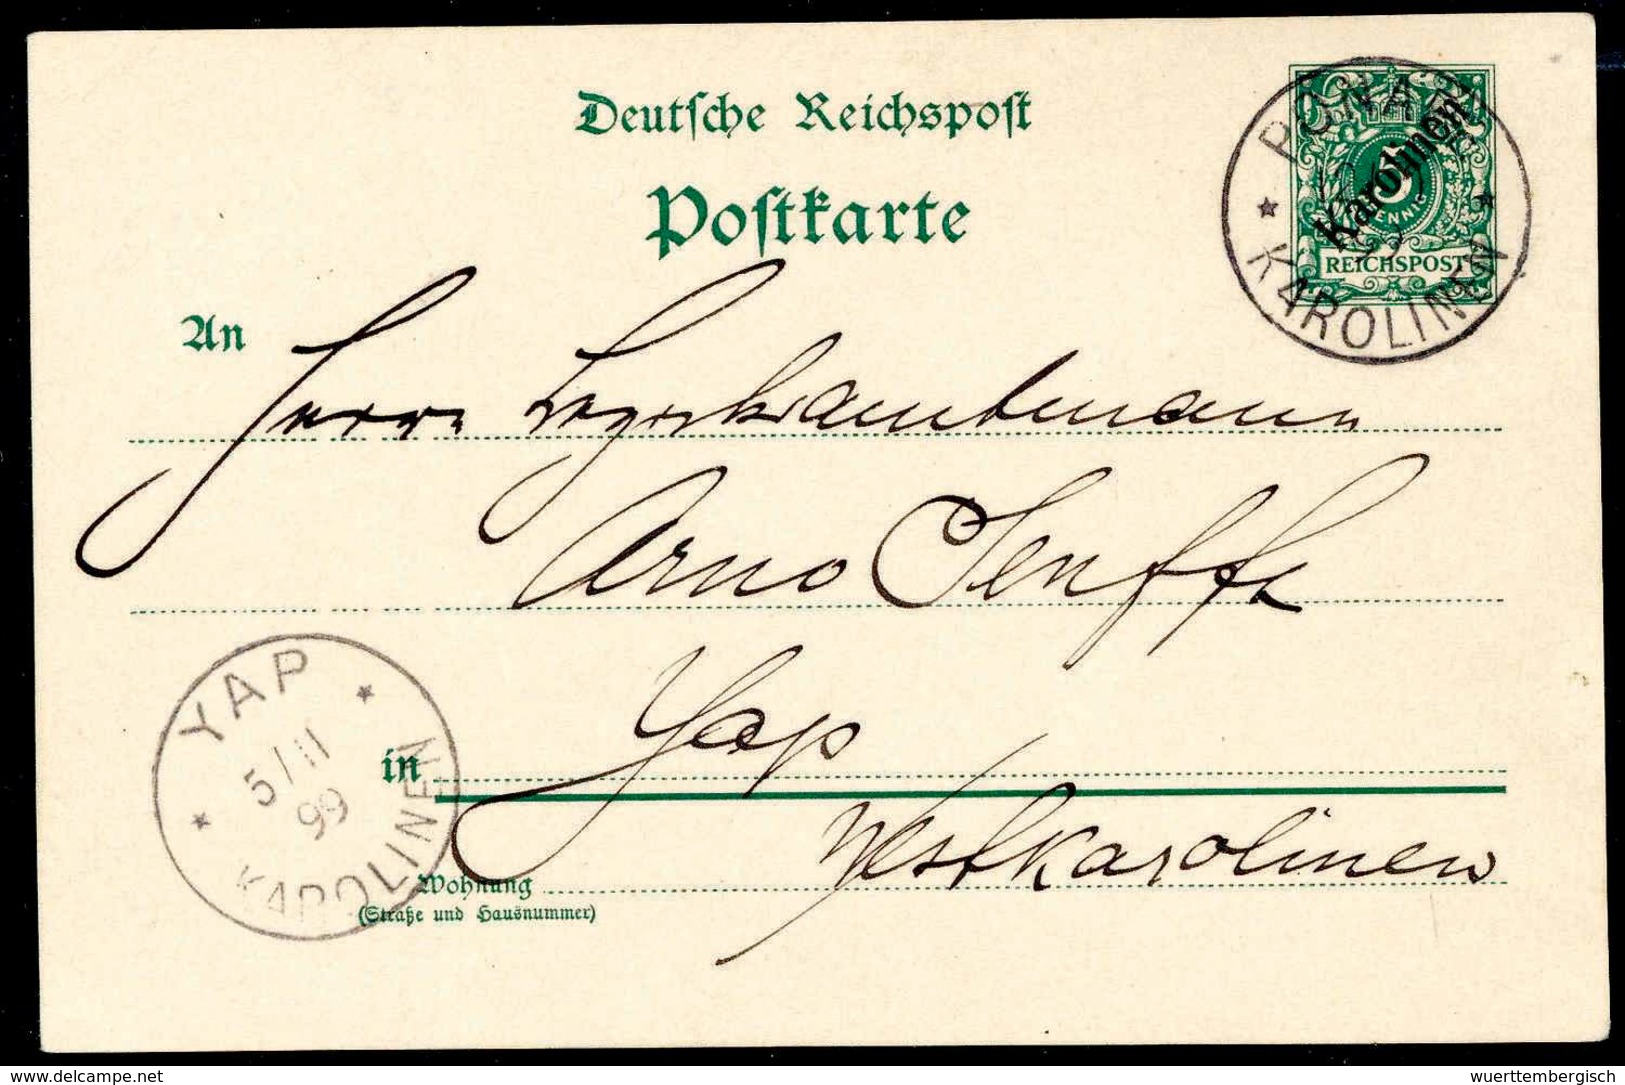 Deutsche Reichspost
Postkarte
PONAPE
KAROLINEN
Karolinen
5
PFENNIG
REICHSPOST
An Herrn Bezirksamtmann
Arno Senfft
in Yap
Westkarolinen
Wohnung
(Straße und Hausnummer)
YAP
5/11
99
KAROLINEN
www.delcampe.net
wuerttembergisch